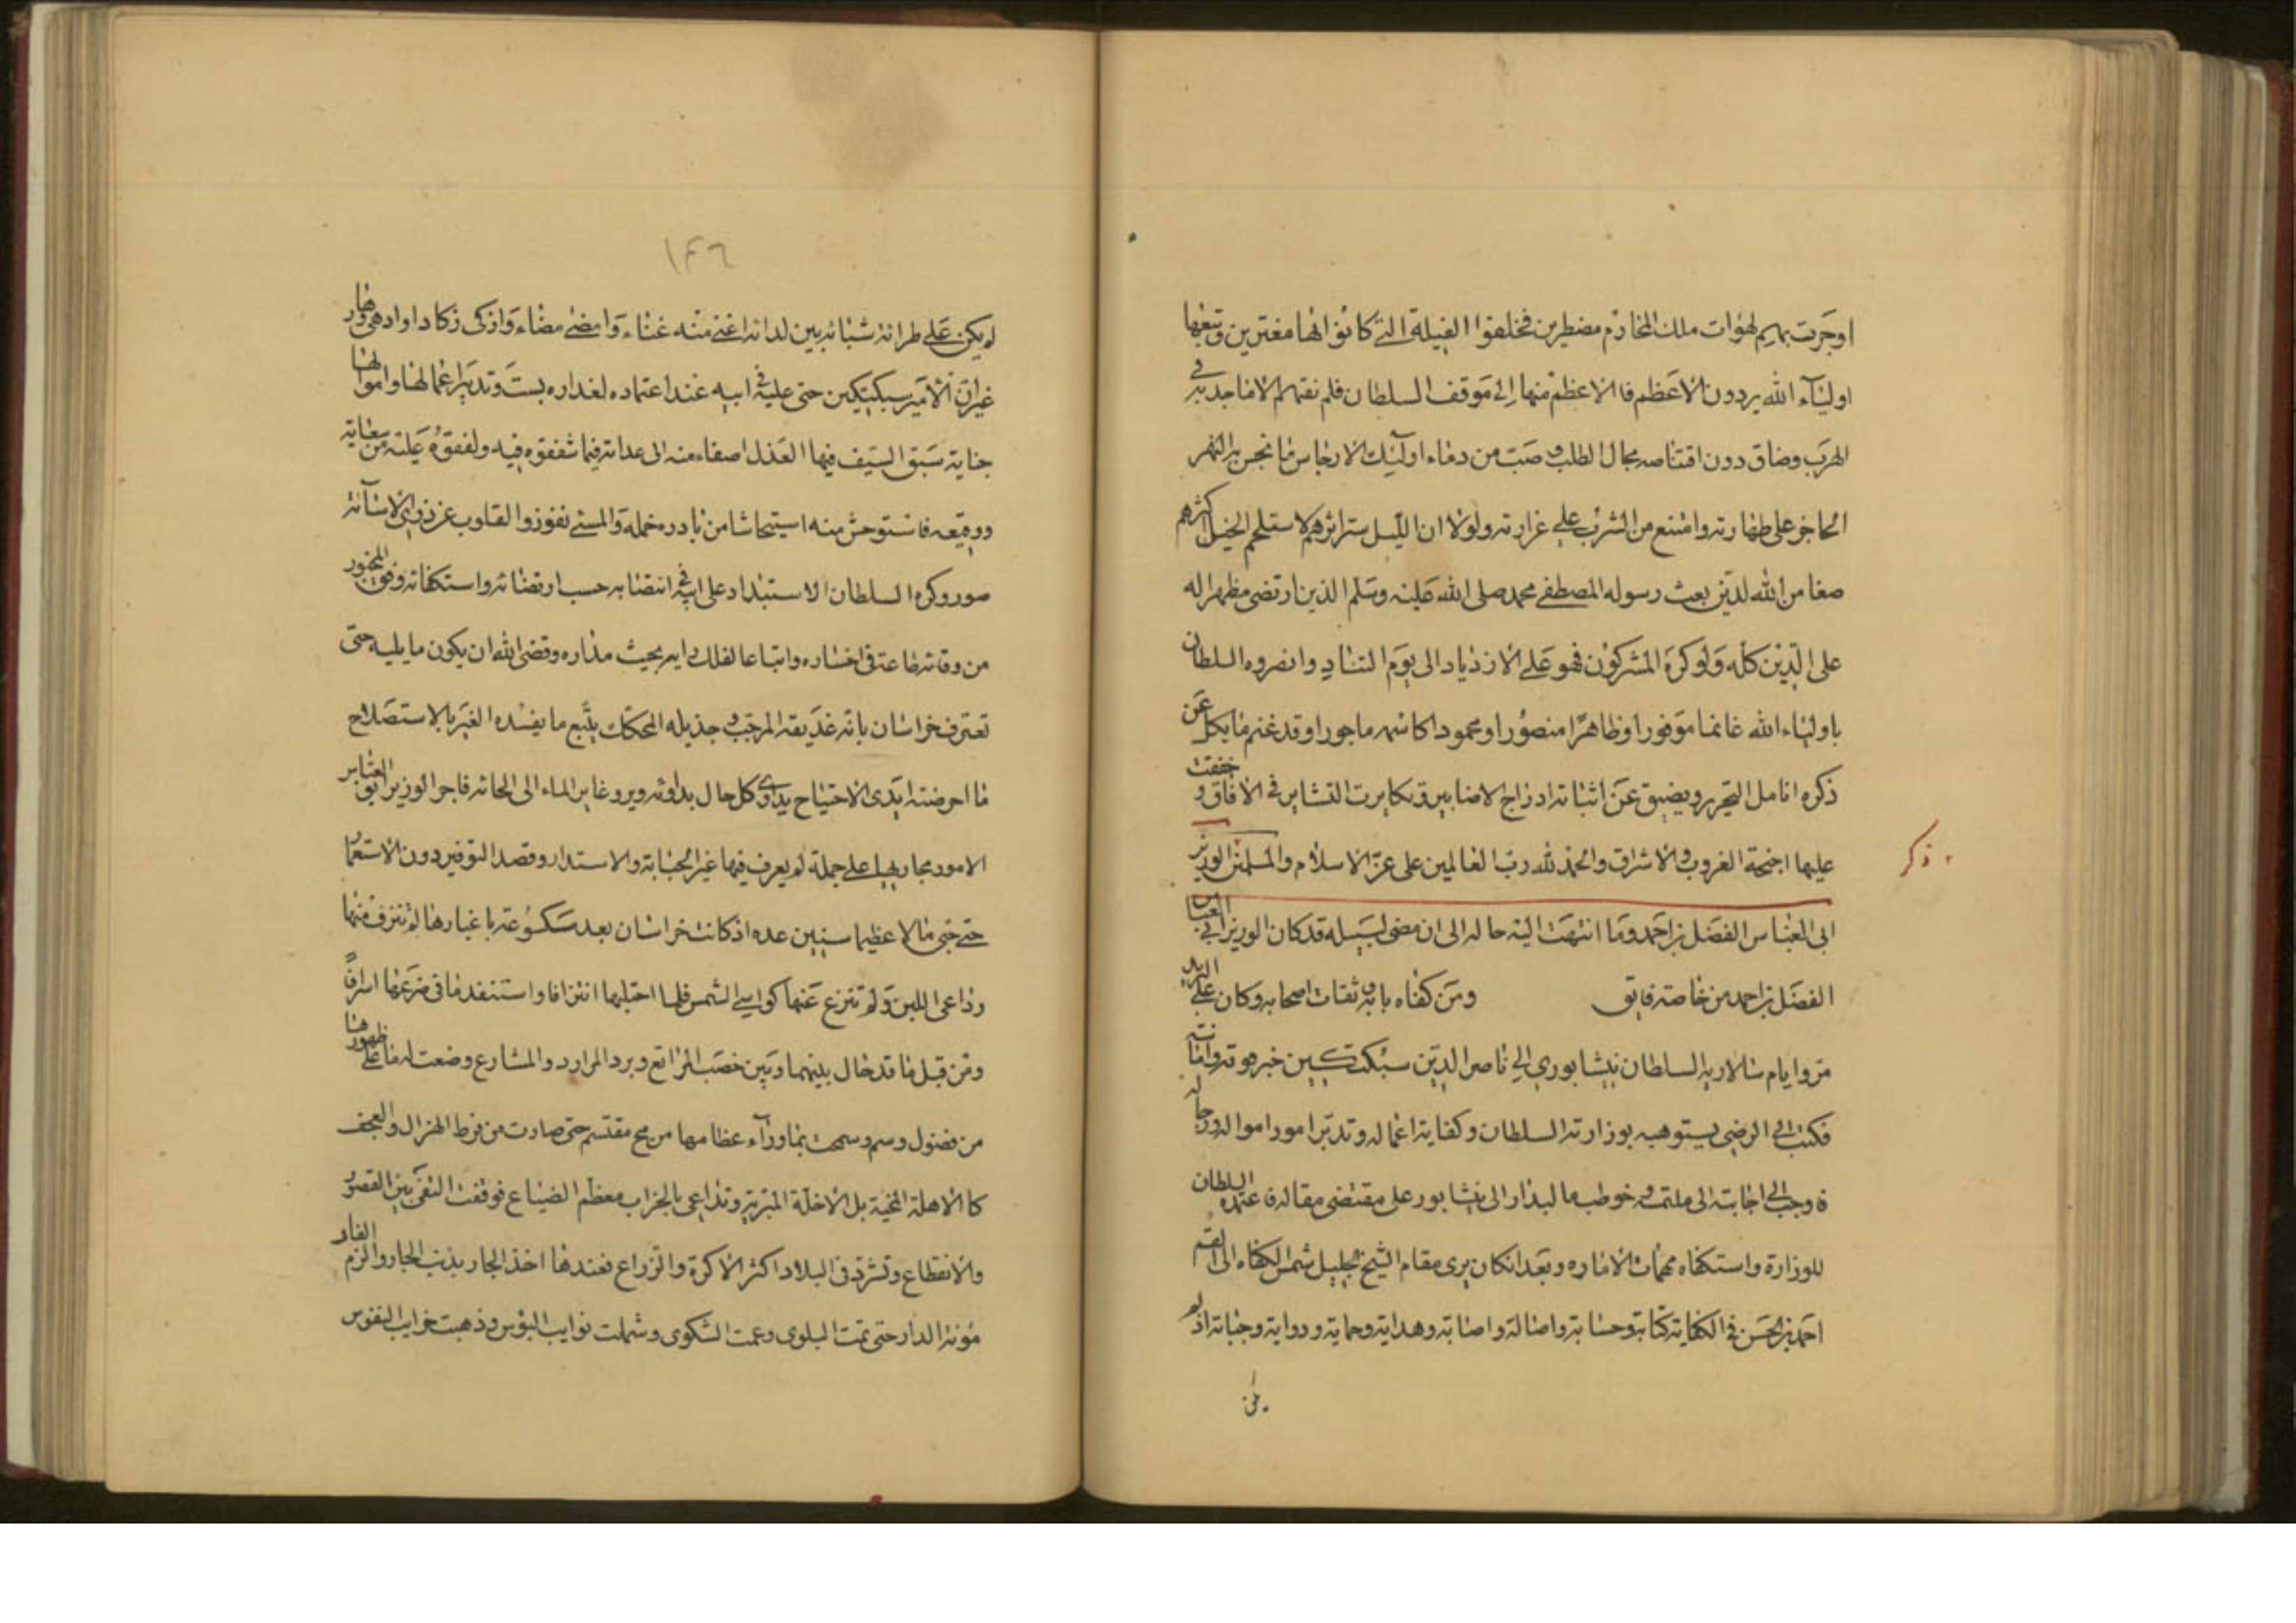 اوجرت بهم لهوات ملك المخادم مضطرين فخلفوا الفيلة التي كانوا الها مغترين وتبعها
اولياء الله يردون الاعظم فالاعظم منها الى موقف السلطان فلم نفتهم الا ما جد به في
الهرب وضاق دون اقتناصه مجال الطلب وصبت من دماء اولئك الارجاس ما نجس به النهر
على طهارته وامتنع من الشرب على غزارته ولولا ان الليل ستر اثرهم لاستلحم الخيل اكثرهم
صنعا من الله لدين بعث رسوله المصطفى محمد صلى الله عليه وسلم الذي ارتضى مظهرا له
على الدين كله ولو كره المشركون فهو على الازدياد الى يوم التناد وانصروه السلطان
باولياء الله غانما موفورا وظاهرا منصورا ومحمودا كاسمه ماجورا وقد غنم ما يكل عن
ذكره انامل التحرير ويضيق عن اثباته ادراج الاضابير وتكايرت التشاير في الافاق وخفقت
عليها اجنحة الغروب والاشراق والحمد لله رب العالمين على عز الاسلام والمسلمين الوزير
ذكر
ابى العباس الفضل بن احمد وما انتهت اليه حاله الى ان مضى لسبيله قد كان الوزير ابى العباس
الفضل بن احمد من خاصة فايق ومن كفاه بابه وثقات اصحابه وكان على البريد
مرو ايام سالارية السلطان نيشابوري الى ناصر الدين سبكتكين خبر موته وامانته
فكتب الى الرضى يستوهبه بوزارته السلطان وكفاية اعماله وتدبر امور امواله ورجاله
فاوجب الى اجابته الى ملتمسه وخوطب ما لبدار الى نيشابور على مقتضى مقاله فاعتمده السلطان
للوزارة واستكفاه مهمات الاماره وبعد ان كان يرى مقام الشيخ الجليل شمس الكفاه الى القسم
احمد بن الحسن في الكفاية كتابة وحسابة واصالة واصابة وهداية وحماية ودواية وجباية اذ لم
يكن
١٤٦
لم يكن على طرائة شبابه بين لداته اغنى منه غناء وامضى مضاء واذكى زكاء او ادهى دهاء
غير ان الامير سبكتكين حتى عليه في ابيه عند اعتماده لغداره بست وتدبير اعمالها واموالها
جناية سبق السيف فيها العذل اصغاء منه الى عداته فيما شفقوه فيه ولفقوه عليه من سعاية
ووقيعه فاستوحش منه استيحاشا من بادره حمله والمسئ نفور والقلوب عن ذوى الاسائة
صور وكره السلطان الاستبداد على ابيه في انتصابه حسب ارتضائه واستكفائه وفور
من وفاته طاعته فى اختياره واتباعا لفلك رايه بحيث مداره وقضى الله ان يكون ما يليه حتى
تعترف خراسان بانه عذيقه المرجب وجذيله المحكك يتبع ما يفسده الغير بالاستصلاح
ما امرضته ايدى الاجتياح يداوى كل حال بدوائه ويروغاير الماء الى الحائه فاجر الوزير ابو العباس
الامور مجاريها على جملة لم يعرف فيها غير الجباية والاستدرار وقصد التوفير دون الاستعمار
حتى جبى مالا عظيما سنين عده اذ كانت خراسان بعد متكسوعة باغبارها لم تنزف منها
دواعى اللبن ولم تنزع عنها كواسى الشمس فلما احتلبها انتزافا واستنفد ما فى ضرعها اسرافا
ومن قبل ما قد حال بينهما وبين خصب المراتع وبرد الموارد والمشارع وضعت له ما على ظهورها
من فضول وسم وسمحت بما وراء عظامها من مح مقتسم حتى صارت من فرط الهزال والعجف
كالاهلة المحنية بل الاخلة المبرية وتداعى بالخراب معظم الضياع فوقفت النفى بين القصور
والانقطاع وتشرد فى البلاد اكثر الاكرة والزراع فعندها اخذ الجار بذنب الجار والزم الفار
مؤنة الدار حتى تمت البلوى وعمت الشكوى وشملت نوايب البؤس وذهبت خرايب النفوس